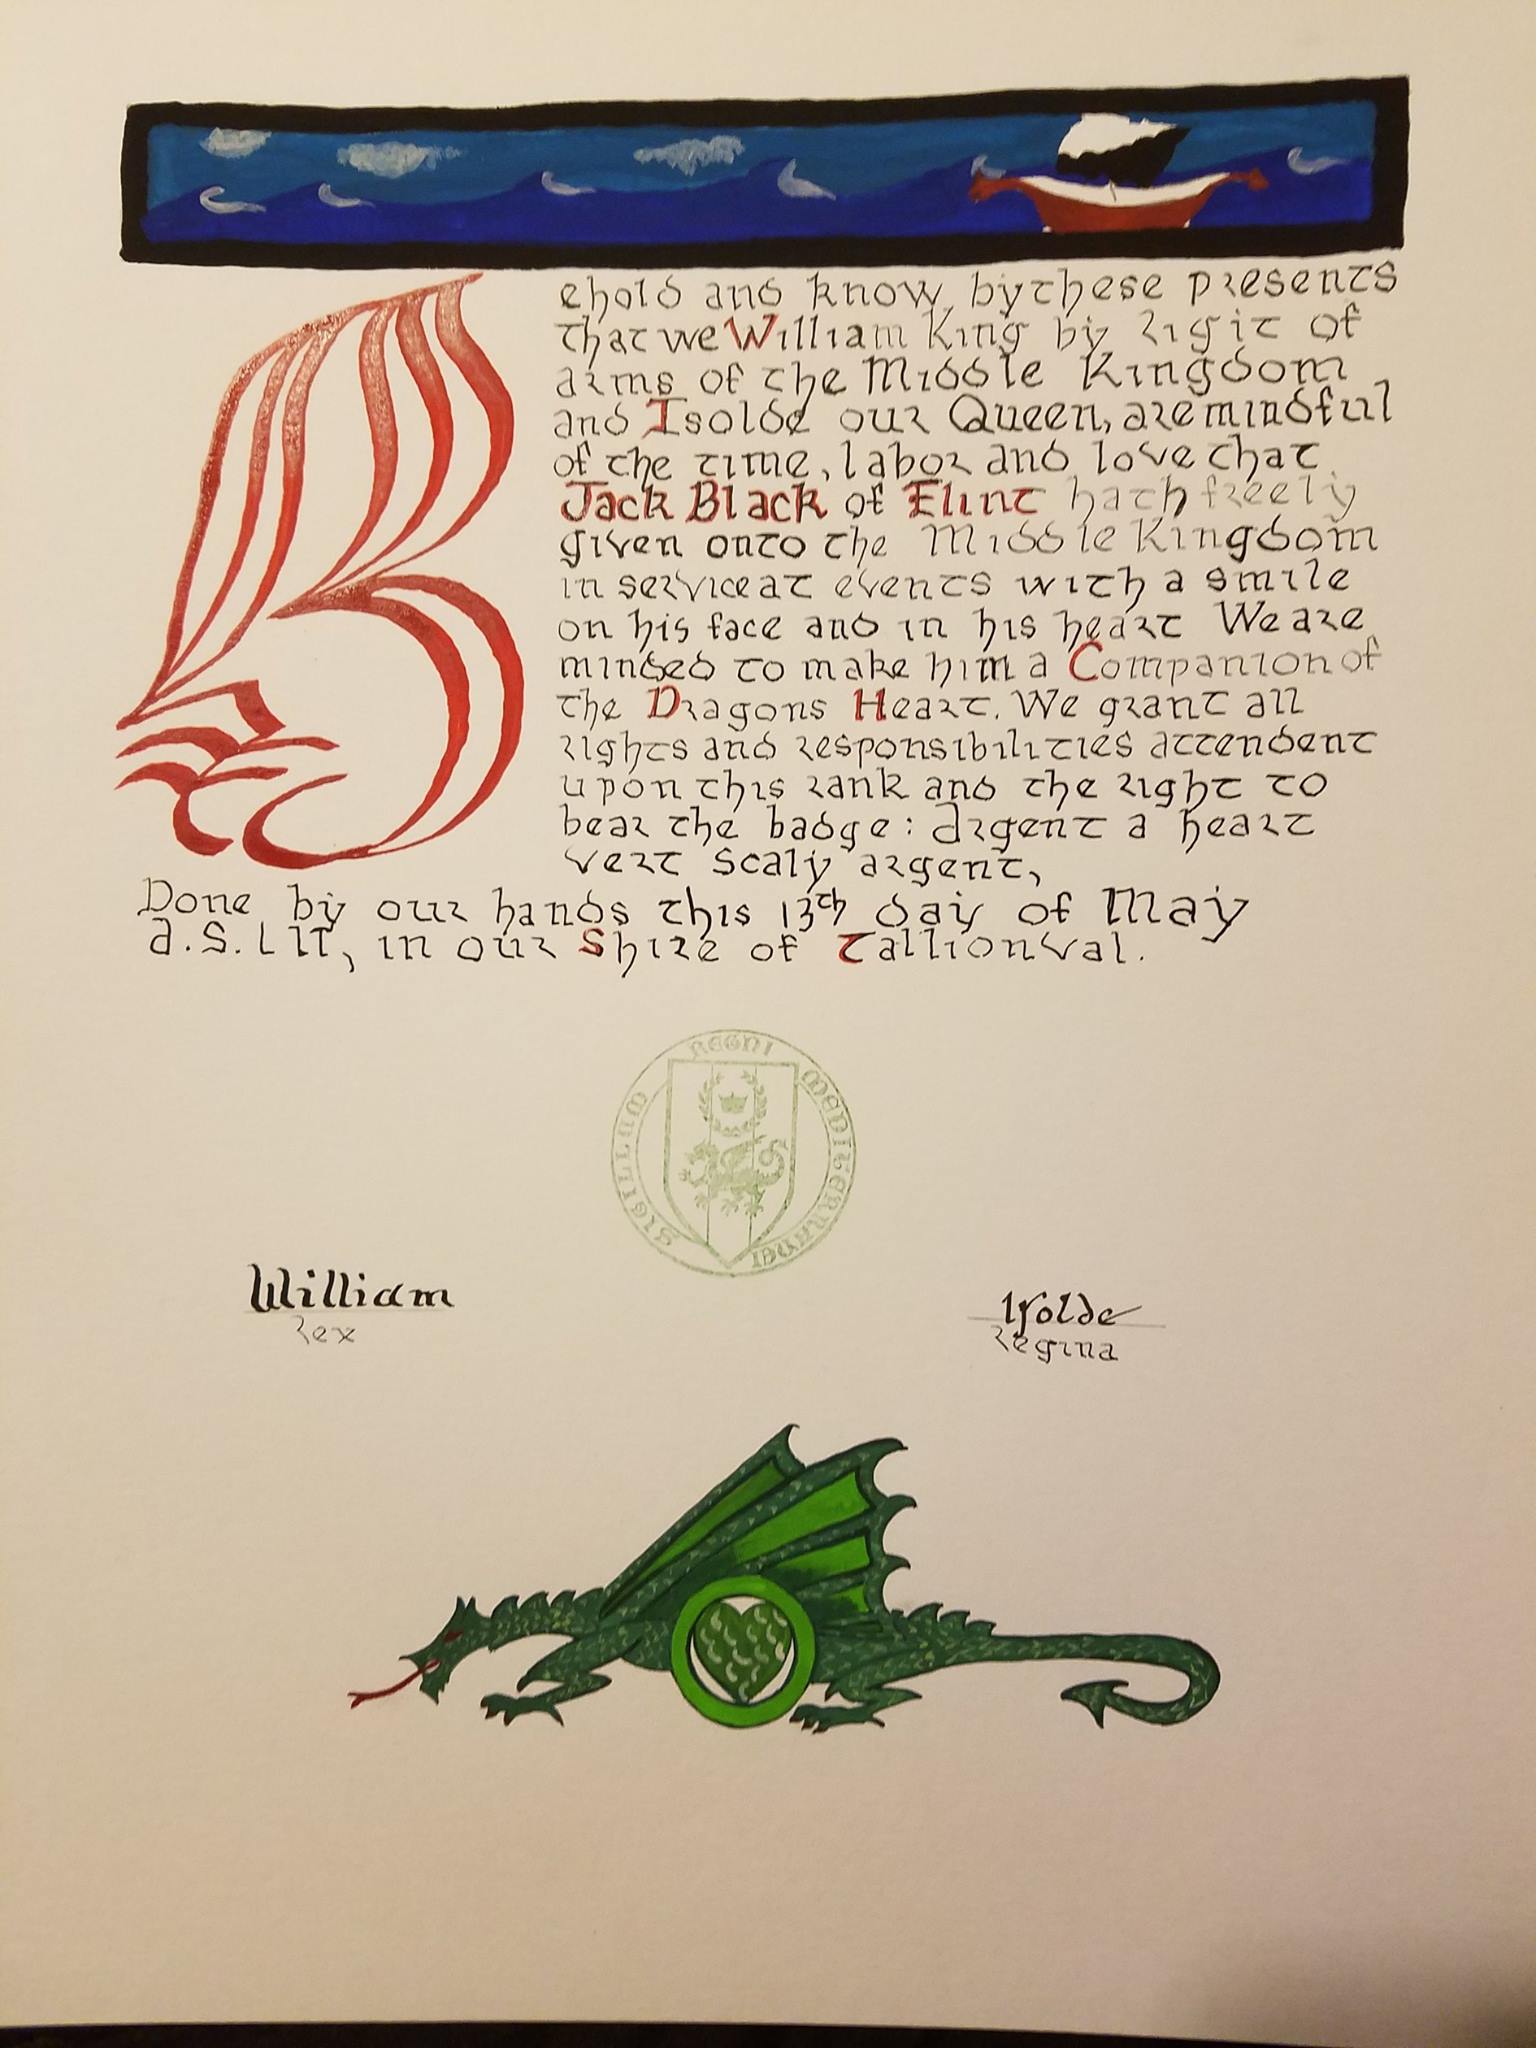 Behold and know by these presents
that we William King by rigit of
arms of the Middle Kingdom
and Isolde our Queen, are mindful
of the time, labor and love that
Jack Black of Elint hath freely
given onto the Middle Kingdom
in service at events with a smile
on his face and in his heart We are
minded to make him a Companion of
the Dragons Heart. We grant all
rights and responsibilities attendent
upon this rank and the right to
bear the badge: argent a heart
vert scaly argent,
Done by our hands this 13th day of May
a.S. LII, in our Shire of Tallionval.
SIGILLUM REGNI MEDITERRANEI
William
Rex
Isolde
Regina